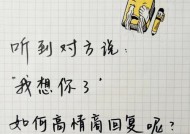 听到对方说：
"我想你了"
如何高情商回复呢？